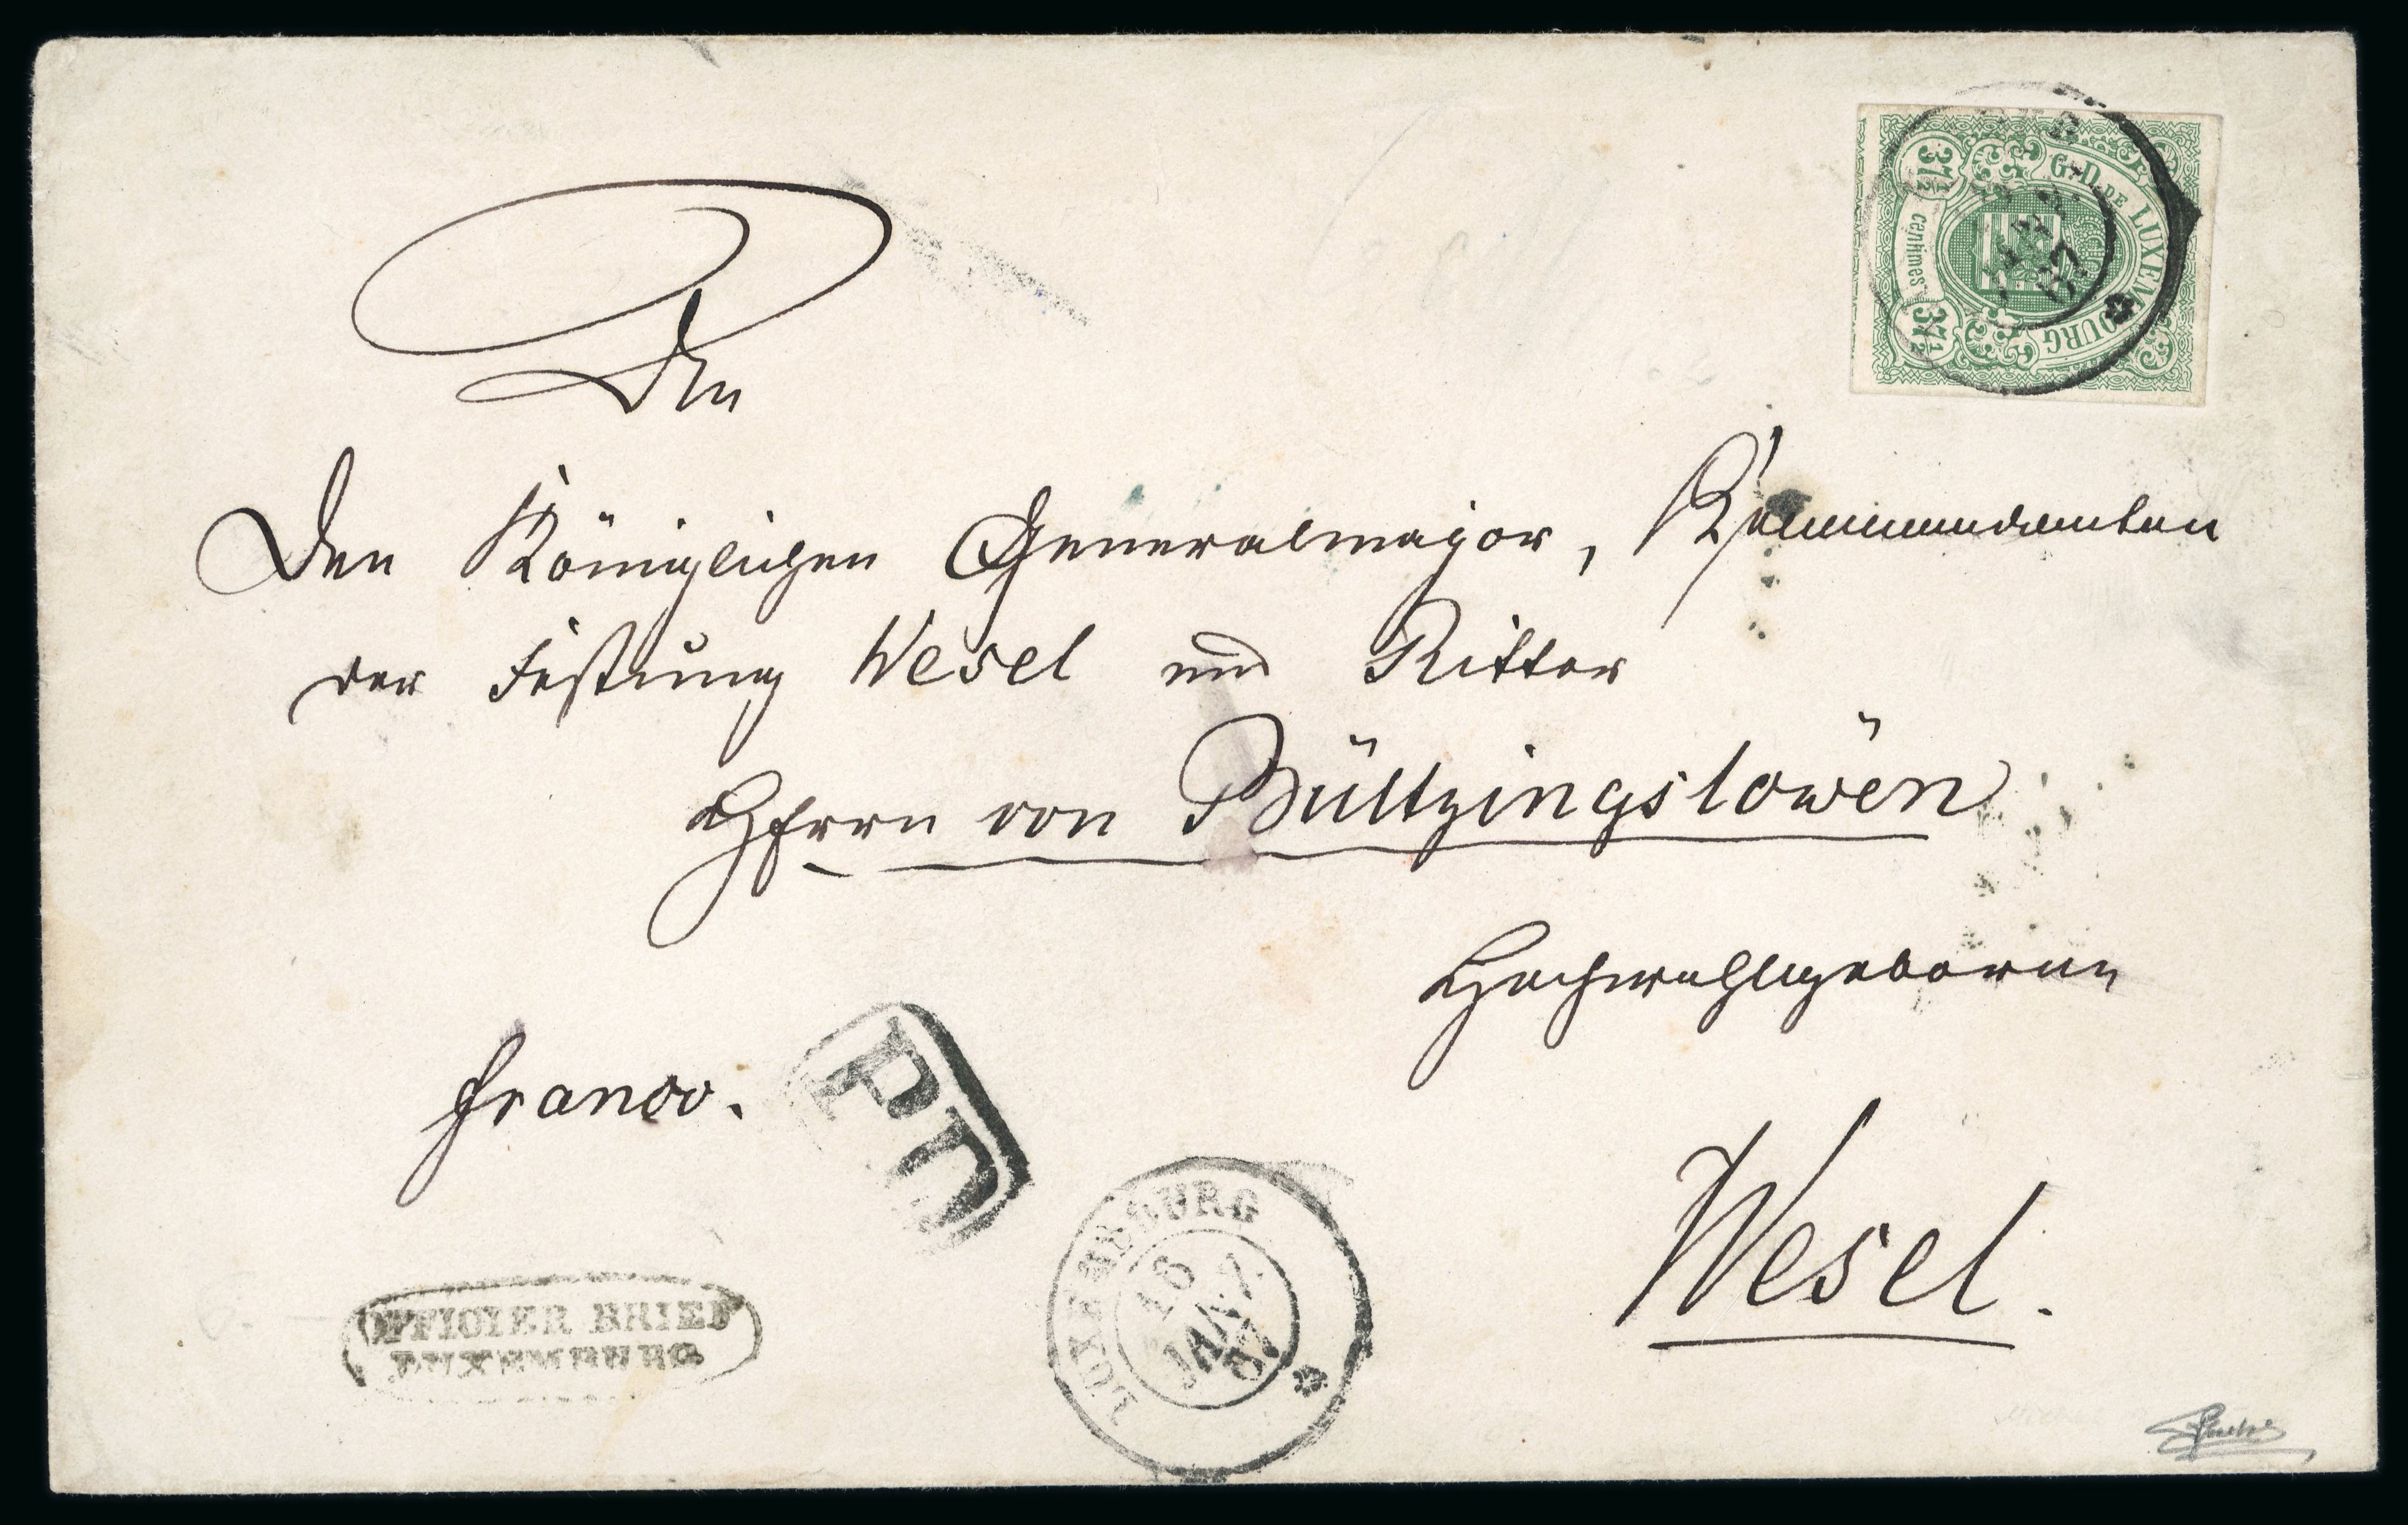 G. D. DE LUXEMBOURG
37½ centimes 37½
JANV. 67
An
Den Königlichen Generalmajor, Kommandanten
der Festung Wesel und Ritter
Herrn von Bültzingslöwen
Hochwohlgeboren
franco.
PD
LUXEMBOURG
16
JANV.
67
Wesel.
OFFICIER BRIEF
LUXEMBURG